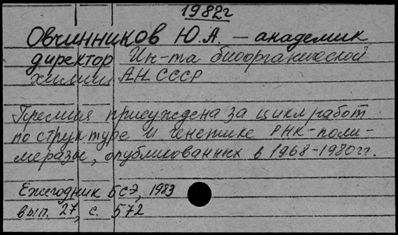 1982г
Овчинников Ю.А. – академик
директор Ин-та биоорганической
химии АН СССР
Премия присуждена за цикл работ
по структуре и генетике РНК-поли-
меразы, опубликованных в 1968-1980гг.
Ежегодник БСЭ, 1983
вып. 27, с. 572